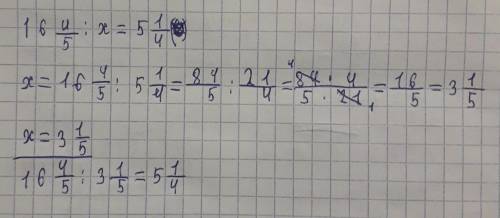 16 4/5 : x = 5 1/4
x = 16 4/5 : 5 1/4 = 84/5 : 21/4 = 84 · 4/5 · 21 = 16/5 = 3 1/5
x = 3 1/5
16 4/5 : 3 1/5 = 5 1/4